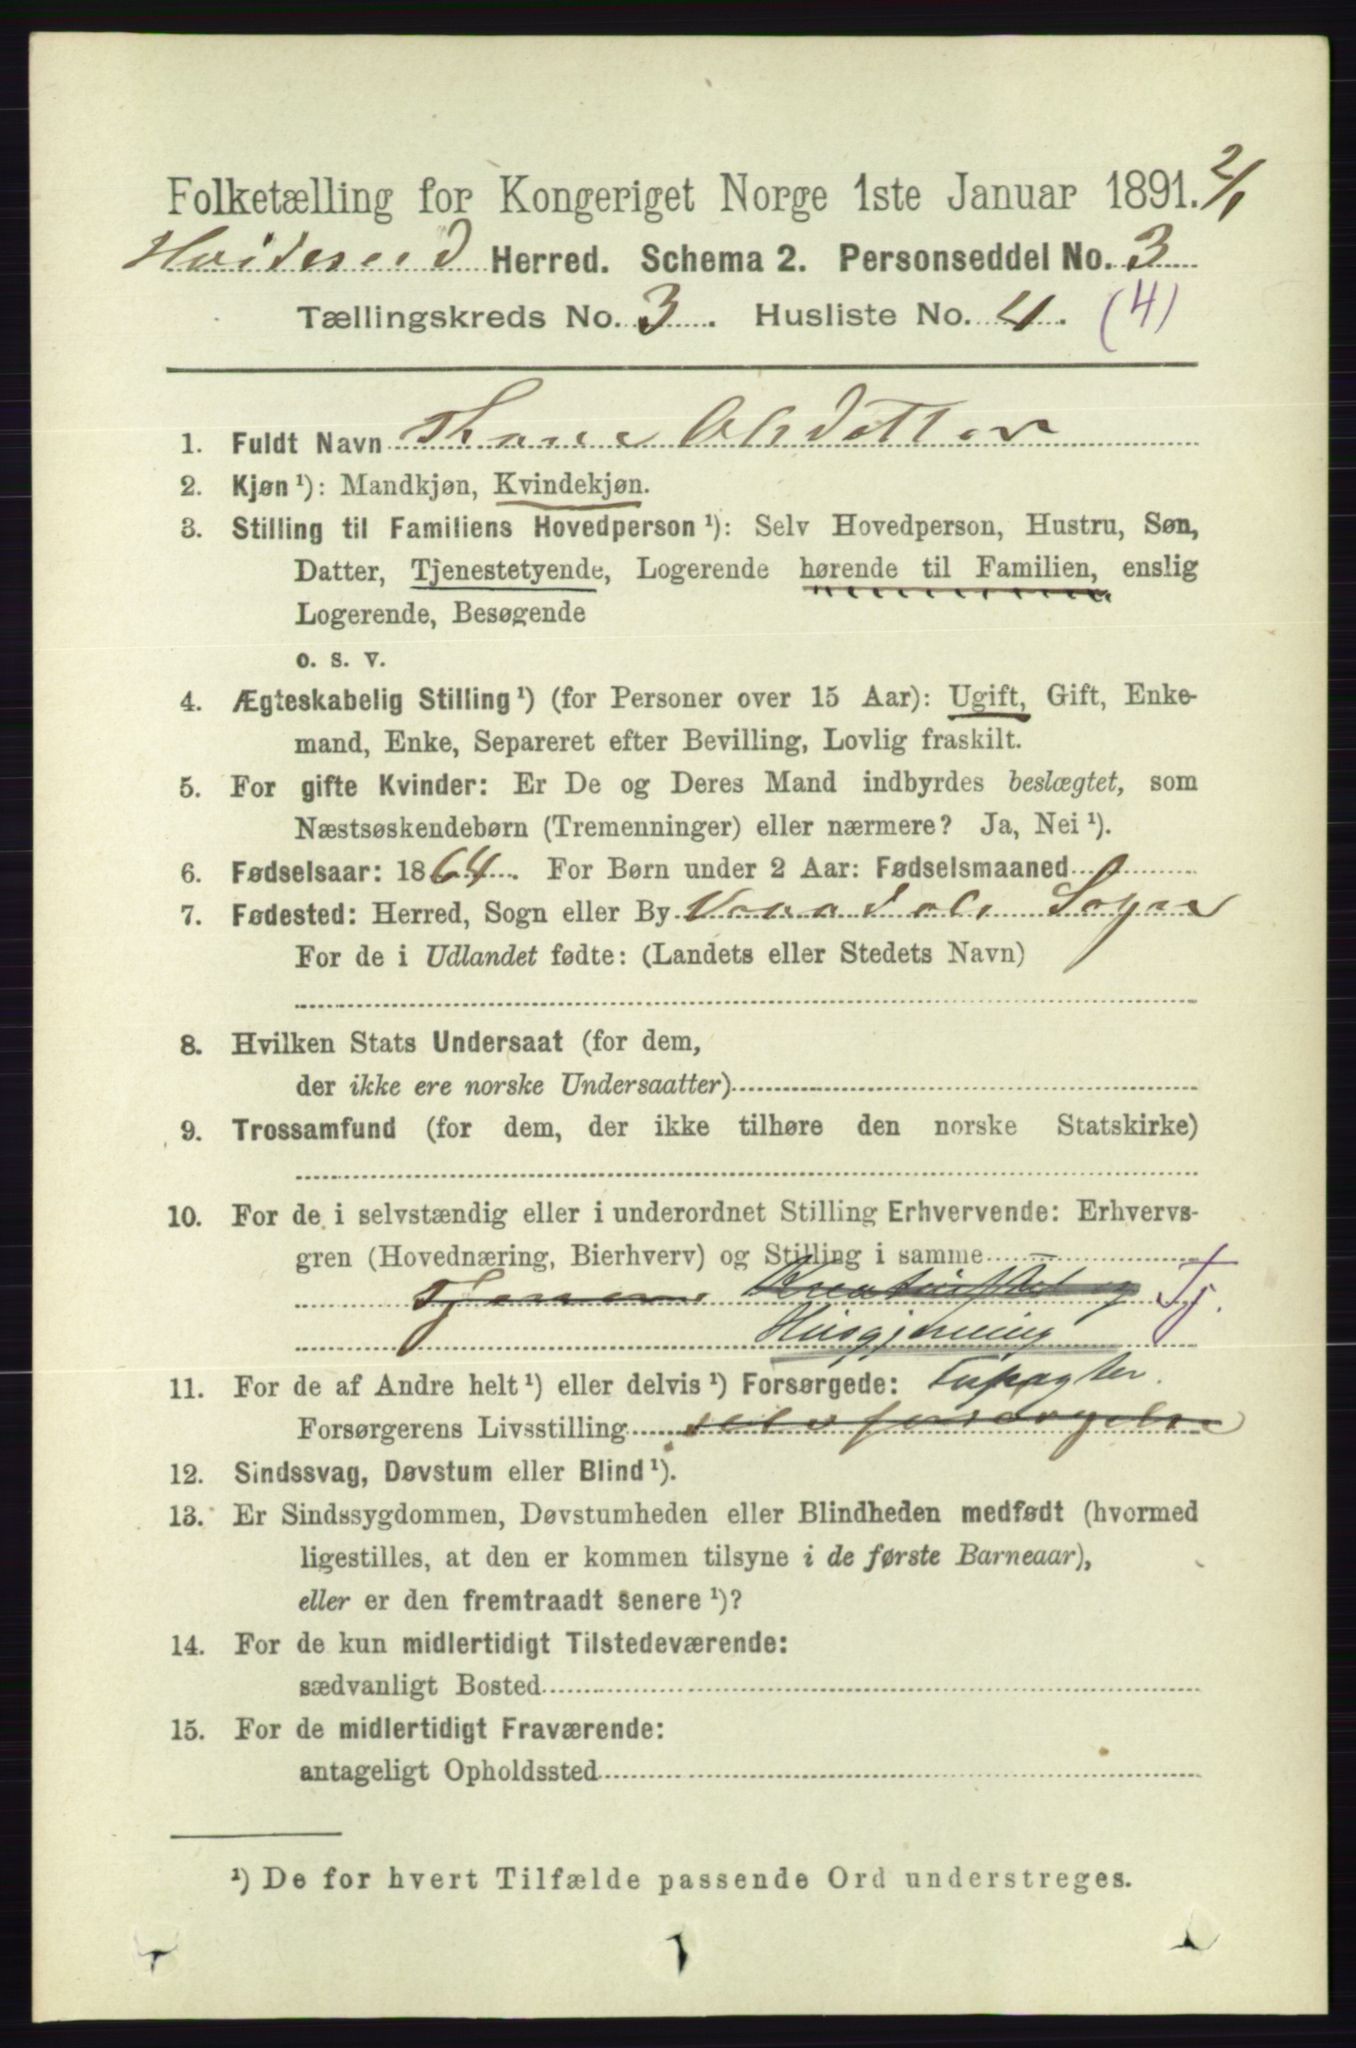 Folketælling for Kongeriget Norge 1ste Januar 1891. 2/1
Hvideseid Herred. Schema 2. Personseddel No. 3
Tællingskreds No. 3. Husliste No. 4. (4)
1. Fuldt Navn Thone Olsdatter
2. Kjøn ¹): Mandkjøn, Kvindekjøn.
3. Stilling til Familiens Hovedperson ¹): Selv Hovedperson, Hustru, Søn,
Datter, Tjenestetyende, Logerende hørende til Familien, enslig
Logerende, Besøgende
o. s. v.
4. Ægteskabelig Stilling ¹) (for Personer over 15 Aar): Ugift, Gift, Enke-
mand, Enke, Separeret efter Bevilling, Lovlig fraskilt.
5. For gifte Kvinder: Er De og Deres Mand indbyrdes beslægtet, som
Næstsøskendebørn (Tremenninger) eller nærmere? Ja, Nei ¹).
6. Fødselsaar: 1864. For Børn under 2 Aar: Fødselsmaaned
7. Fødested: Herred, Sogn eller By Vraadals Sogn
For de i Udlandet fødte: (Landets eller Stedets Navn)
8. Hvilken Stats Undersaat (for dem,
der ikke ere norske Undersaatter)
9. Trossamfund (for dem, der ikke tilhøre den norske Statskirke)
10. For de i selvstændig eller i underordnet Stilling Erhvervende: Erhvervs-
gren (Hovednæring, Bierhverv) og Stilling i samme
Tj.
Husgjerning
11. For de af Andre helt ¹) eller delvis ¹) Forsørgede:
Forsørgerens Livsstilling selvforsørgelse
12. Sindssvag, Døvstum eller Blind ¹).
13. Er Sindssygdommen, Døvstumheden eller Blindheden medfødt (hvormed
ligestilles, at den er kommen tilsyne i de første Barneaar),
eller er den fremtraadt senere ¹)?
14. For de kun midlertidigt Tilstedeværende:
sædvanligt Bosted
15. For de midlertidigt Fraværende:
antageligt Opholdssted
¹) De for hvert Tilfælde passende Ord understreges.